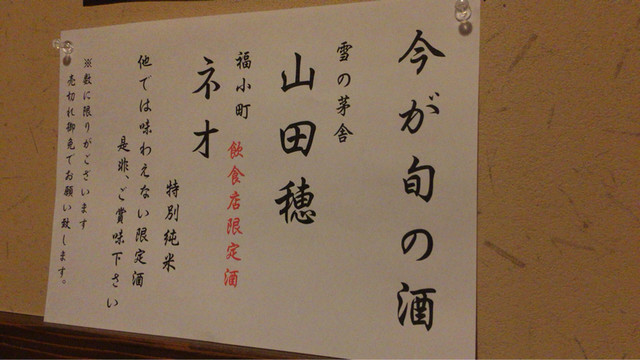 今が旬の酒
雪の茅舎
山田穂
福小町
飲食店限定酒
ネオ
特別純米
他では味わえない限定酒
是非、ご賞味下さい
※数に限りがございます
売切れ御免でお願い致します。